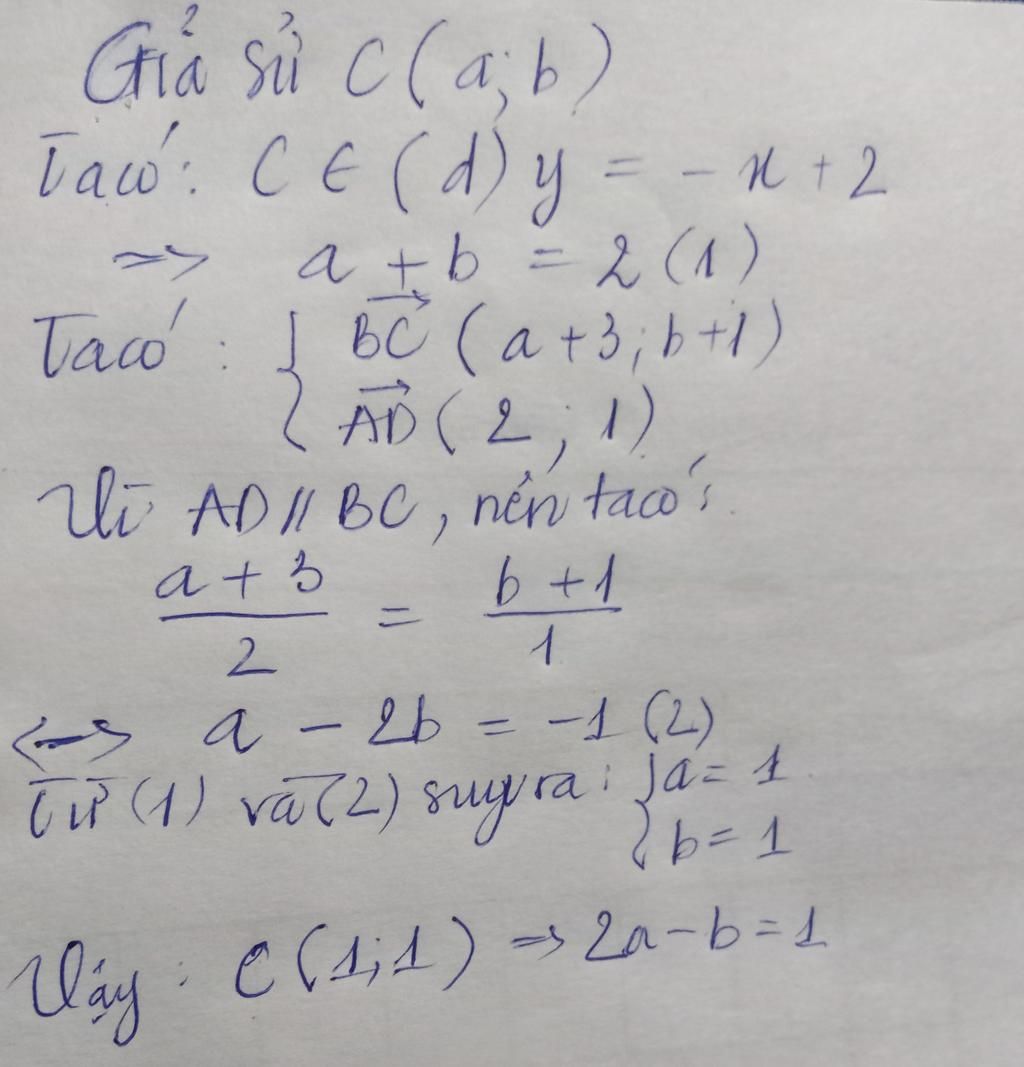 Giả sử C(a;b)
Ta có: C ∈ (d) y = -x + 2
=> a + b = 2 (1)
Ta có: { BC→ (a+3; b+1)
AD→ (2; 1)
Vì AD // BC, nên ta có:
(a+3)/2 = (b+1)/1
<=> a - 2b = -1 (2)
Từ (1) và (2) suy ra: { a = 1
b = 1
Vậy: C(1;1) => 2a - b = 1